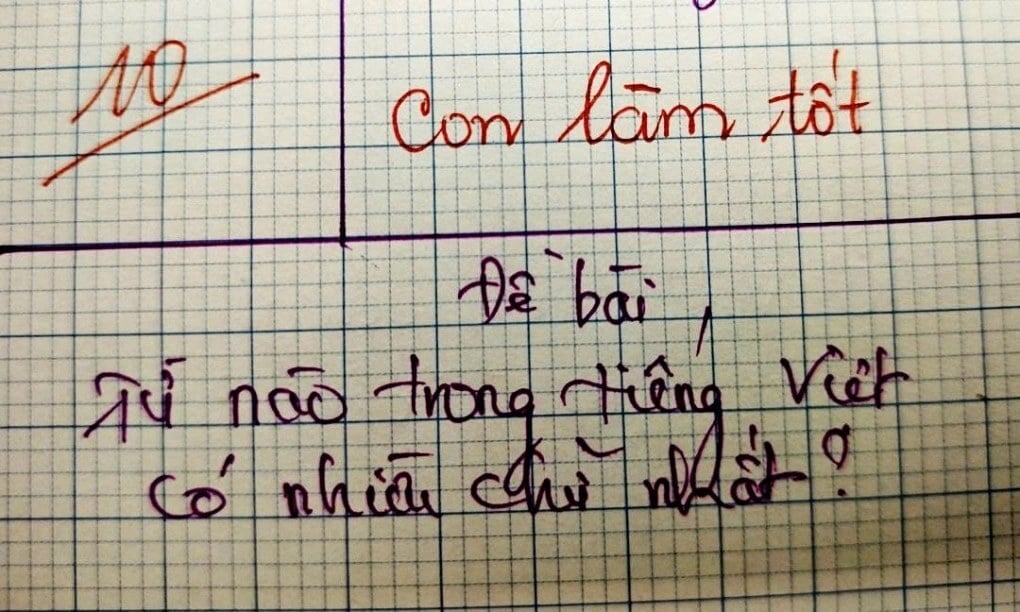 10
Con làm tốt
Đề bài
Từ nào trong tiếng Việt
có nhiều chữ nhất?